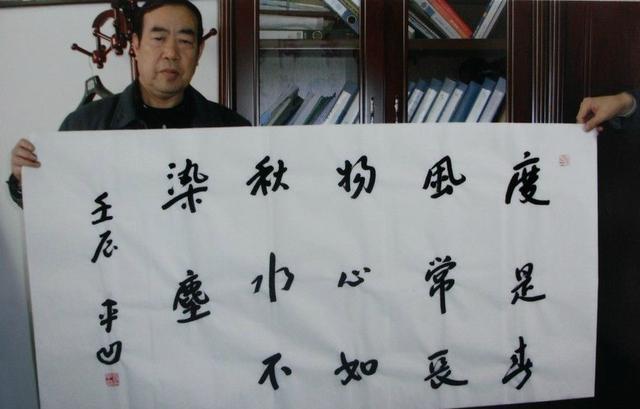 度是春
風常長
物心如
秋水不
染塵
壬辰 平凹